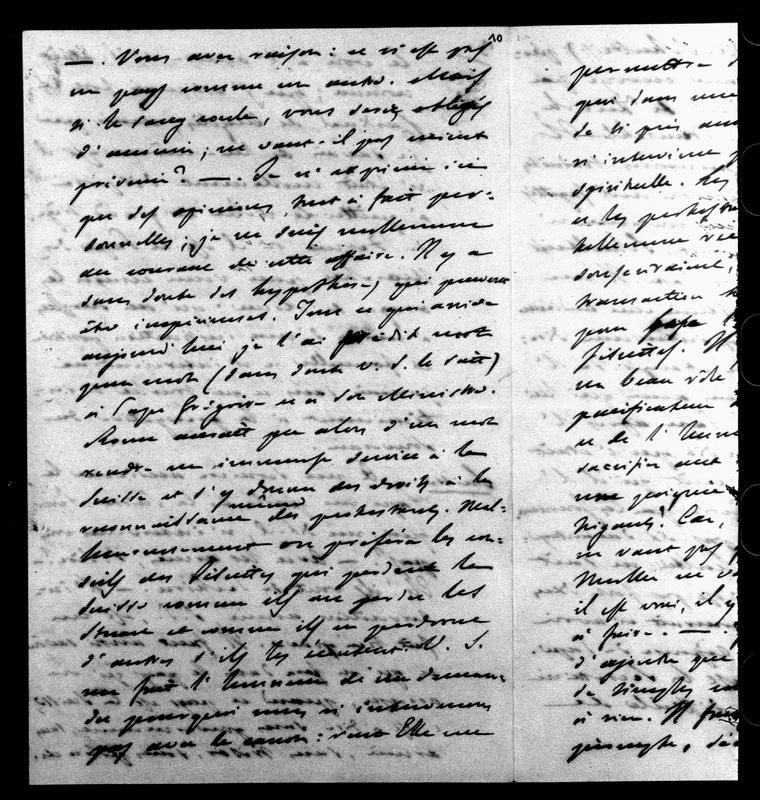 10
—. Vous avez raison: ce n'est pas
un pays comme un autre. Mais
si le sang coule, vous serez obligés
d'accourir; ne vaut-il pas mieux
prévenir? —. Je n'exprime ici
que des opinions tout à fait per-
sonnelles; je ne suis nullement
au courant de cette affaire. Il y a
sans doute des hypothèses qui peuvent
être impérieuses. Tout ce qui arrive
aujourd'hui je l'ai prédit mot
pour mot (sans doute v. S. le sait)
à Pape Grégoire et à son Ministre.
Rome aurait pu alors d'un mot
rendre un immense service à la
Suisse et s'y donner des droits à la
reconnaissance même des protestants. Mal-
heureusement on préféra les con-
seils des Jésuites qui perdent la
Suisse comme ils ont perdu les
Stuart et comme ils en perdront
d'autres s'ils les écoutent. V. S.
me fait l'honneur de me deman-
der pourquoi nous n'intervenons
pas avec le canon: vous Elle me
permettre d
que dans une
de si près
n'intervienne p
spirituelle. Les
et les protesta
tellement
transaction
pour
Jésuites. Il
un beau rôle
pacificateur
et de l'huma
sacrifier
une poignée
Car,
ne vaut pas p
il est vrai, il y
à faire. —.
d'ajouter que
de simples
à rien. Il